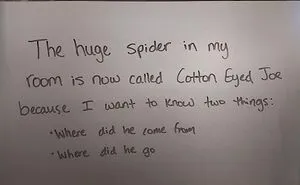 The huge spider in my
room is now called Cotton Eyed Joe
because I want to know two things:
• Where did he come from
• Where did he go